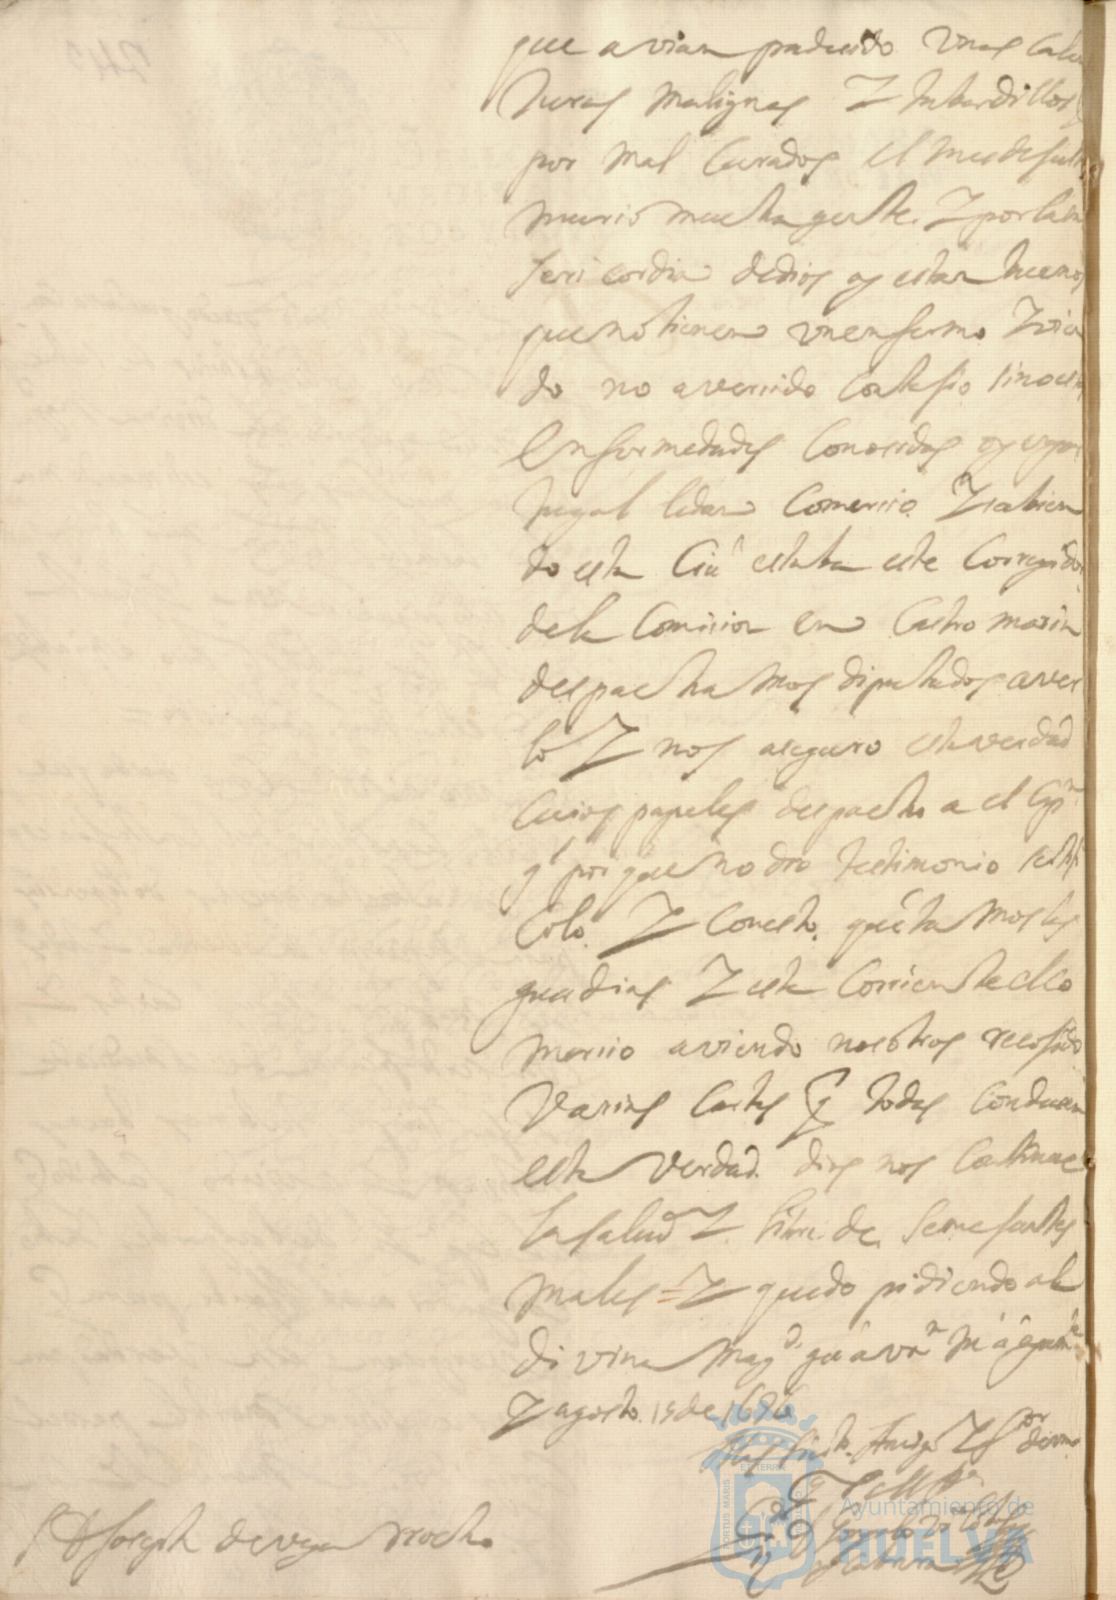 que avian padecido Unas Calen
turas malignas Y tabardillos
por mal Curados el mes de Julio
murio mucha gente. Y por la mi
sericordia de dios oy estan buenos
que no tienen un enfermo. Y vien
do no aver sido Contagio sino
enfermedades Conocidas oy
tugal le dan Comercio. Y sabien
do esta Ciud estaba este Corregidor
de la Comision en Castro marin
despachamos diputados a ver
lo Y nos aseguro esta verdad
Cuios papeles despacho a el Capn
gl por que no dio testimonio
solo. Y Con esto. quitamos las
guardias Y esta Corriente el Co
mercio aviendo nosotros recoxido
Varias Cartas q todas Conducen
esta verdad. dios nos Continue
la salud Y libre de Semejantes
males = Y quedo pidiendo a la
divina Magd. gue a vm
Y agosto 15 de 1686
Amigo
Sr D Joseph de vega
Ayuntamiento de
HUELVA
PORTUS MARIS
ET TERRÆ